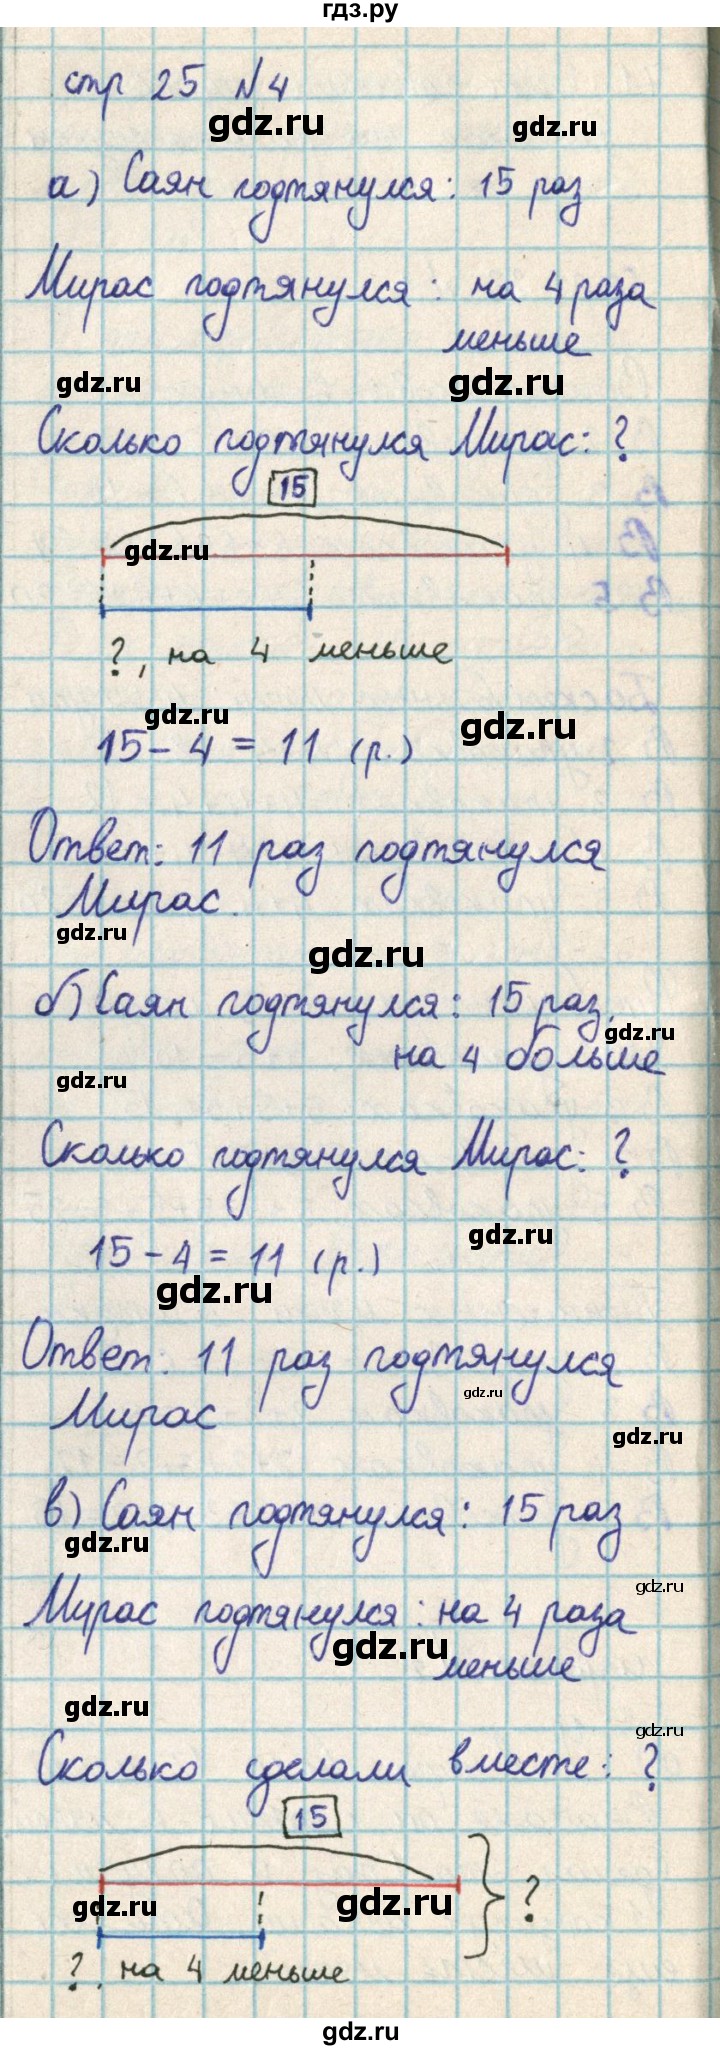 гдз.ру
стр 25 №4
gdz.ru
gdz.ru
а) Саян подтянулся: 15 раз
Мирас подтянулся: на 4 раза
меньше
gdz.ru
gdz.ru
Сколько подтянулся Мирас: ?
15
gdz.ru
?, на 4 меньше
gdz.ru
gdz.ru
15 - 4 = 11 (р.)
Ответ: 11 раз подтянулся
Мирас.
gdz.ru
gdz.ru
б) Саян подтянулся: 15 раз,
gdz.ru
на 4 больше
gdz.ru
Сколько подтянулся Мирас: ?
gdz.ru
15 - 4 = 11 (р.)
gdz.ru
Ответ: 11 раз подтянулся
gdz.ru
Мирас
gdz.ru
в) Саян подтянулся: 15 раз
gdz.ru
gdz.ru
Мирас подтянулся: на 4 раза
gdz.ru
меньше
gdz.ru
gdz.ru
Сколько сделали вместе: ?
15
gdz.ru
gdz.ru
?
?, на 4 меньше
gdz.ru